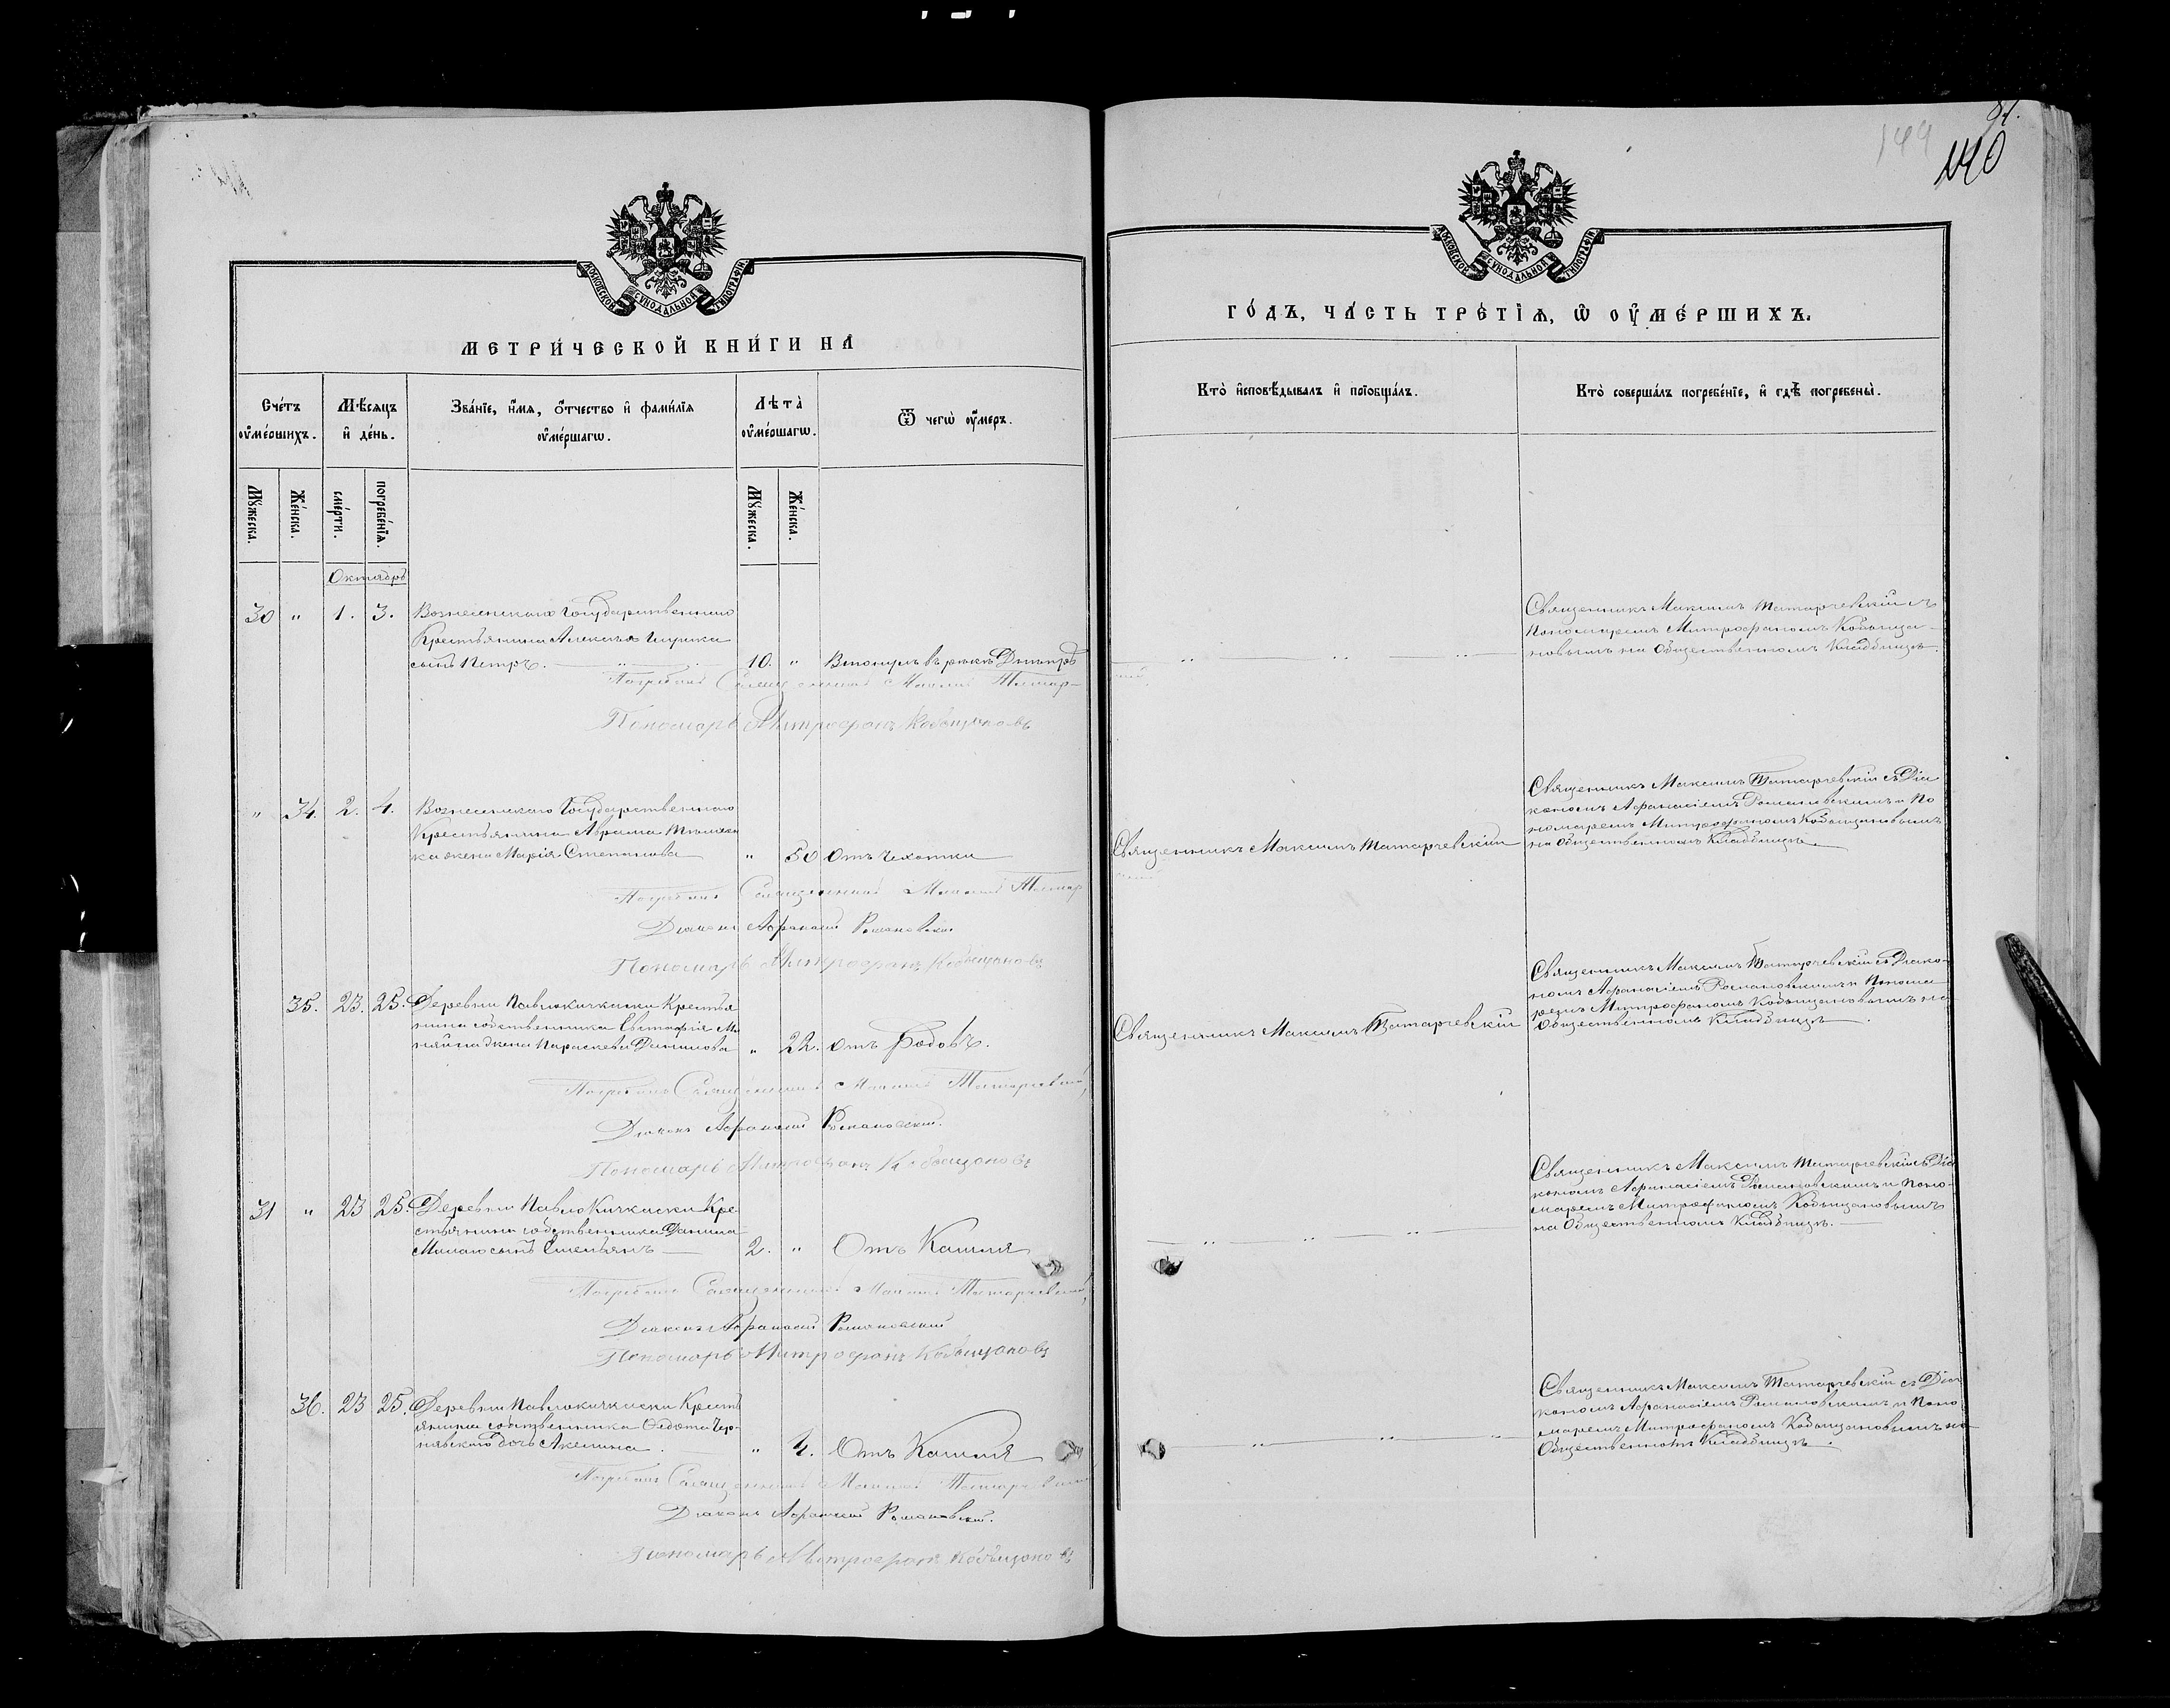 91.
144
140
МОСКОВСКОЙ СѴНОДАЛЬНОЙ ТИПОГРАФІИ
МЕТРИ́ЧЕСКОЙ КНИ́ГИ НА
Сче́тъ ᲂу҆ме́ршихъ.
Мѣ́сѧцъ и҆ де́нь.
Зва́нїе, и҆́мѧ, ѻ҆́тчество и҆ фами́лїѧ ᲂу҆ме́ршагѡ.
Лѣта̀ ᲂу҆ме́ршагѡ.
Ѿ чегѡ̀ ᲂу҆́меръ.
Мꙋ́жеска.
Же́нска.
сме́рти.
погребе́нїѧ.
Мꙋ́жеска.
Же́нска.
Октябрь
30 " 1. 3. Вознесенскаго Государственнаго
Крестьянина Алексѣя
сынъ Петръ. 10. " Утонулъ въ рѣкѣ Днѣпрѣ
Погребалъ Священникъ Максимъ Татар-
Пономарь Митрофанъ Кобыщановъ
" 34. 2. 4. Вознесенскаго Государственнаго
Крестьянина Аврама
жена Марія Степанова " 50 Отъ Чахотки
Погребалъ Священникъ Максимъ Татар
Діаконъ Афанасій Романовскій
Пономарь Митрофанъ Кобыщановъ
35. 23. 25. Деревни Павлокичкаски Крестья
нина собственника Евстафія
жена Параскева Данилова " 22. отъ Родовъ.
Погребалъ Священникъ Максимъ Татарчевскій,
Діаконъ Афанасій Романовскій.
Пономарь Митрофанъ Кобыщановъ
31 " 23 25. Деревни ПавлоКичкаски Кре
стьянина собственника Данила
Милаго сынъ Емельянъ 2. " Отъ Кашля
Погребалъ Священникъ Максимъ Татарчевскій,
Діаконъ Афанасій Романовскій
Пономарь Митрофанъ Кобыщановъ
36. 23 25. Деревни Павлокичкаски Кресть
янина собственника Федота Чер-
нявскаго дочь Акилина. " 4. Отъ Кашля
Погребалъ Священникъ Максимъ Татарчевскій
Діаконъ Афанасій Романовскій.
Пономарь Митрофанъ Кобыщановъ
МОСКОВСКОЙ СѴНОДАЛЬНОЙ ТИПОГРАФІИ
ГО́ДЪ, ЧА́СТЬ ТРЕ́ТЇѦ, Ѡ҆ ОУ҆МЕ́РШИХЪ.
Кто̀ и҆сповѣ́дывалъ и҆ прїобща́лъ.
Кто̀ соверша́лъ погребе́нїе, и҆ гдѣ̀ погребены̀.
Священникъ Максимъ Татарчевскій съ
Пономаремъ Митрофаномъ Кобыща-
новымъ на Общественномъ Кладбищѣ.
Священникъ Максимъ Татарчевскій
Священникъ Максимъ Татарчевскій съ Діа
кономъ Афанасіемъ Романовскимъ и По
номаремъ Митрофаномъ Кобыщановымъ
на Общественномъ Кладбищѣ.
Священникъ Максимъ Татарчевскій
Священникъ Максимъ Татарчевскій съ Діако-
номъ Афанасіемъ Романовскимъ и Понома
ремъ Митрофаномъ Кобыщановымъ на
Общественномъ Кладбищѣ.
Священникъ Максимъ Татарчевскій съ Діа
кономъ Афанасіемъ Романовскимъ и Поно-
маремъ Митрофаномъ Кобыщановымъ
на Общественномъ Кладбищѣ.
Священникъ Максимъ Татарчевскій съ Діа
кономъ Афанасіемъ Романовскимъ и Поно
маремъ Митрофаномъ Кобыщановымъ на
Общественномъ Кладбищѣ.